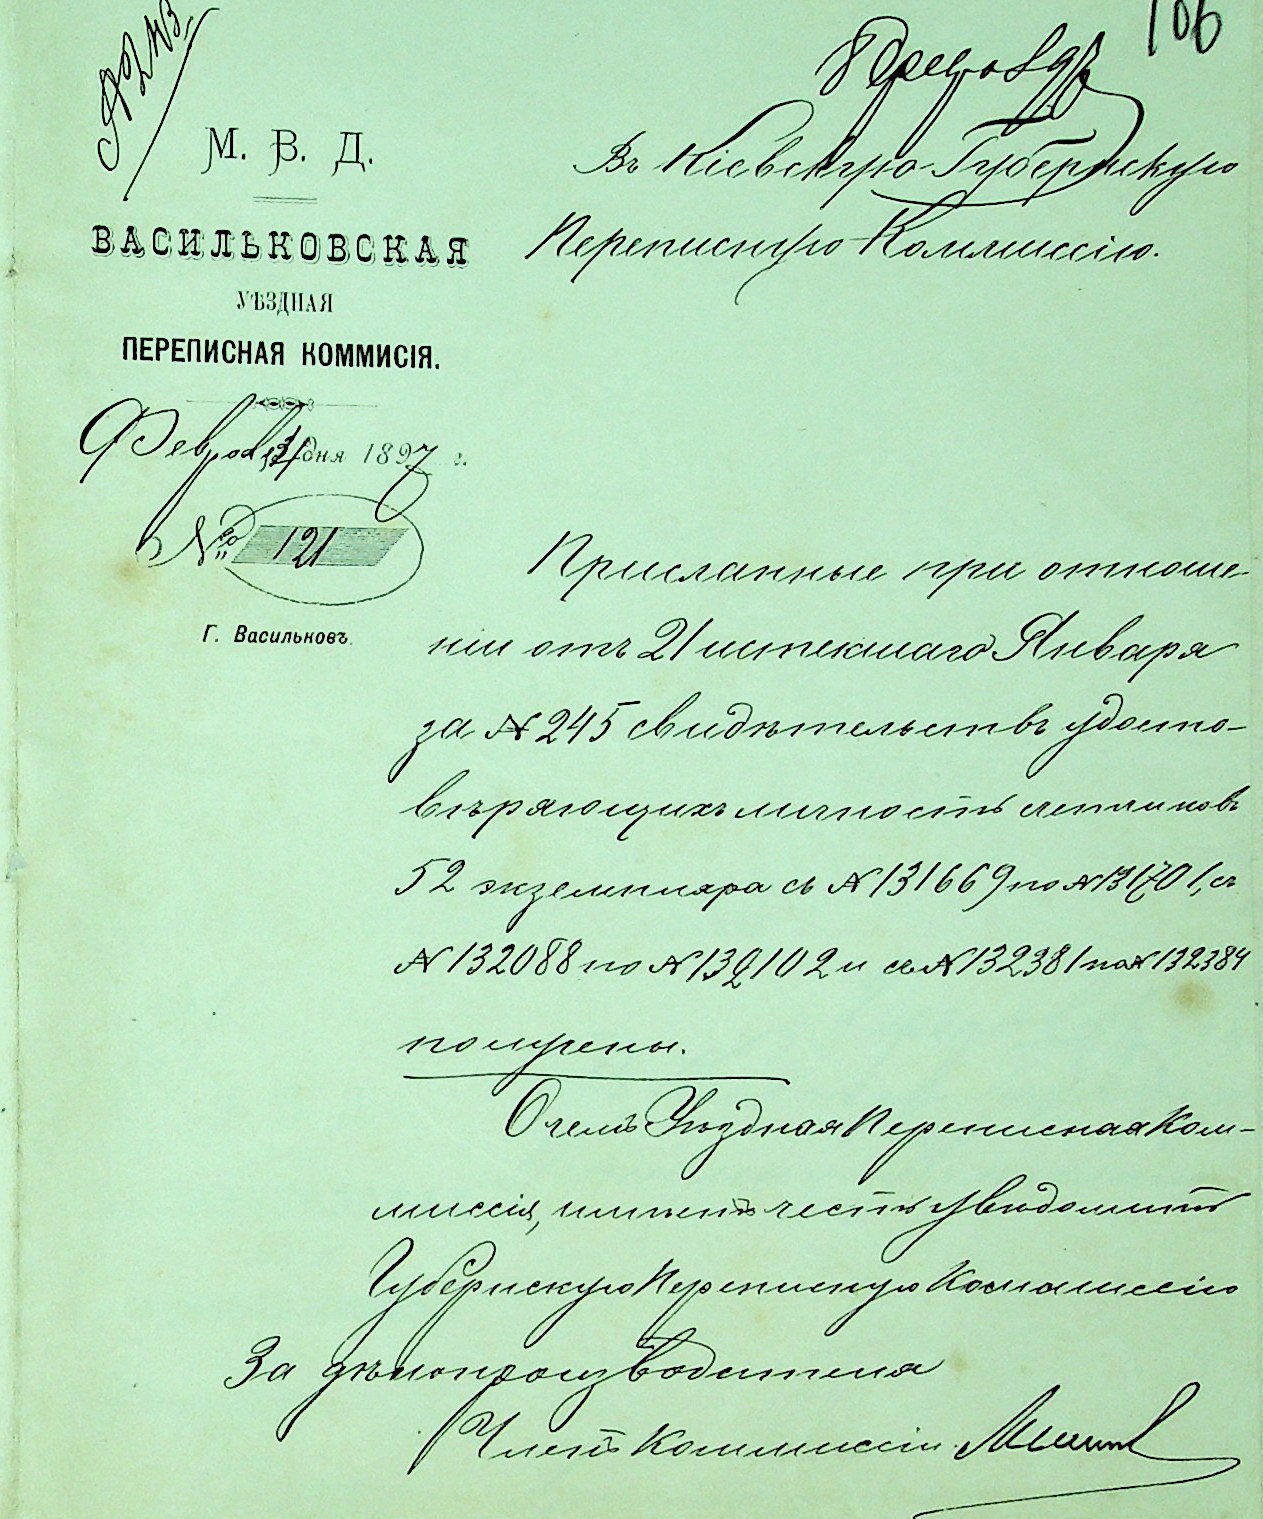 106
М. В. Д.
ВАСИЛЬКОВСКАЯ
УѢЗДНАЯ
ПЕРЕПИСНАЯ КОММИСІЯ.
Февраля дня 1897 г.
№ 121
Г. Васильковъ.
Въ Кіевскую Губернскую
Переписную Коммиссію.
Присланные при отноше-
ніи отъ 21 истекшаго Января
за № 245 свидѣтельствъ удосто-
вѣряющихъ личность счетчиковъ
52 экземпляра съ № 131669 по № 131701, съ
№ 132088 по № 132102 и съ № 132381 по № 132384
получены.
О чемъ Уѣздная Переписная Ком-
миссія, имѣетъ честь увѣдомить
Губернскую Переписную Коммиссію
За дѣлопроизводителя
Членъ Коммиссіи